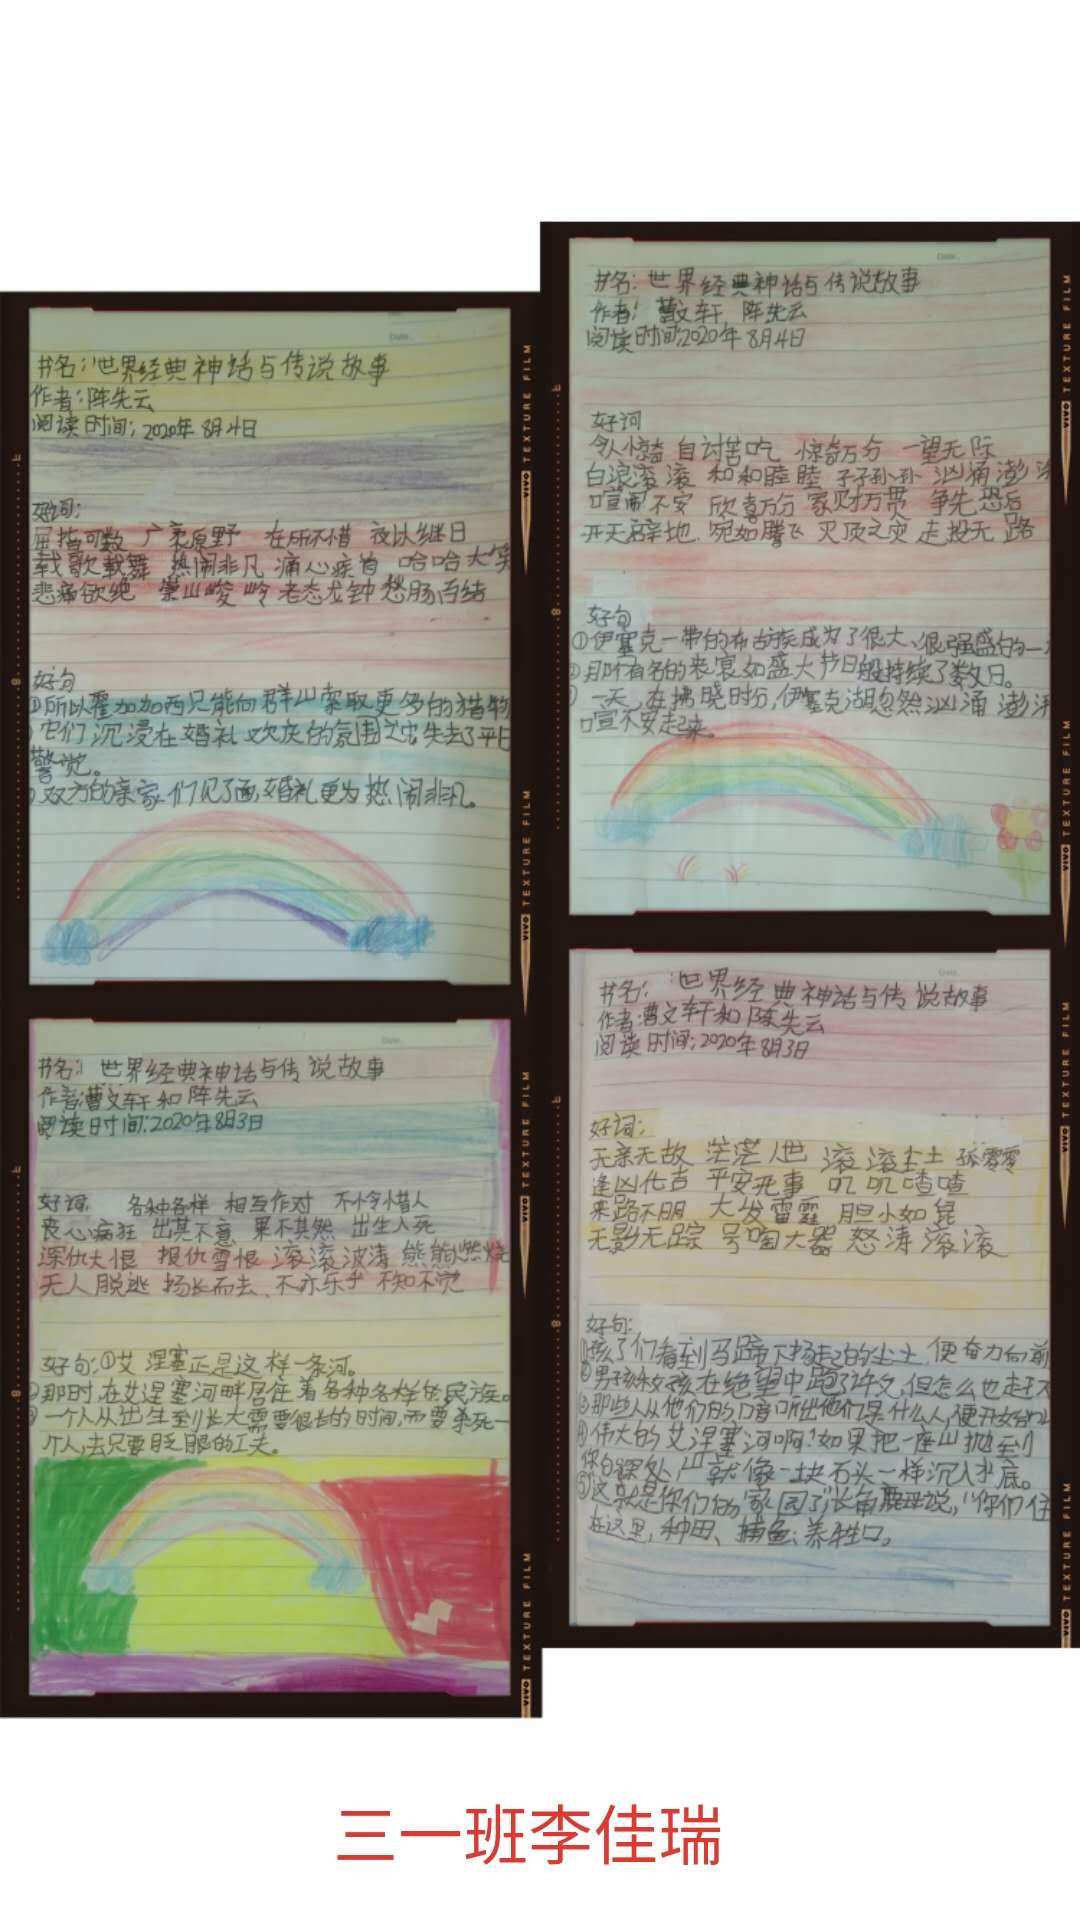 书名:《世界经典神话与传说故事
作者:陈先云
阅读时间:2020年8月4日
好词:
屈指可数 广袤原野 在所不惜 夜以继日
载歌载舞 热闹非凡 痛心疾首 哈哈大笑
悲痛欲绝 崇山峻岭 老态龙钟 愁肠百结
好句
①所以霍加加西只能向群山索取更多的猎物
它们沉浸在婚礼欢庆的氛围之中失去了平日
警觉。
双方的亲家们见了面,婚礼更为热闹非凡。
书名:世界经典神话与传说故事
作者:曹文轩 陈先云
阅读时间:2020年8月4日
好词
令人惊奇 自讨苦吃 惊奇万分 一望无际
白浪滚滚 和和睦睦 子子孙孙 汹涌澎湃
喧闹不安 欣喜万分 家财万贯 争先恐后
开天辟地 宛如腾飞 灭顶之灾 走投无路
好句
①伊塞克一带的布古族成为了很大、很强盛的一
②用所有名的丧宴如盛大节日般持续了数日。
一天,在拂晓时分,伊塞克湖忽然汹涌澎湃
喧不安起来。
书名:世界经典神话与传说故事
作者:曹文轩和陈先云
阅读时间:2020年8月3日
好词: 各种各样 相互作对 不怜惜人
丧心病狂 出其不意 果不其然 出生入死
深仇大恨 报仇雪恨 滚滚波涛 熊熊燃烧
无人脱逃 扬长而去 不亦乐乎 不知不觉
好句:①艾涅塞正是这样一条河。
②那时,在艾涅塞河畔居住着各种各样的民族。
③一个人从出生到长大需要很长的时间,而要杀死一
个人,去只要眨眼的工夫。
书名:《世界经典神话与传说故事
作者:曹文轩和陈先云
阅读时间:2020年8月3日
好词:
无亲无故 茫茫人世 滚滚尘土 孤零零
逢凶化吉 平安无事 叽叽喳喳
来路不明 大发雷霆 胆小如鼠
无影无踪 号啕大哭 怒涛滚滚
好句:
①孩子们看到马蹄下扬起的尘土,便奋力向前
②男孩和女孩在绝望中跑了许久,但怎么也走不
③那些人从他们的口音听出他们是什么人,便开始
④伟大的艾涅塞河啊!如果把一座山抛到
你的深处,山就像一块石头一样沉入水底。
⑤这就是你们的家园了"长角鹿母说,"你们住
在这里,种田、捕鱼、养牲口。
三一班李佳瑞